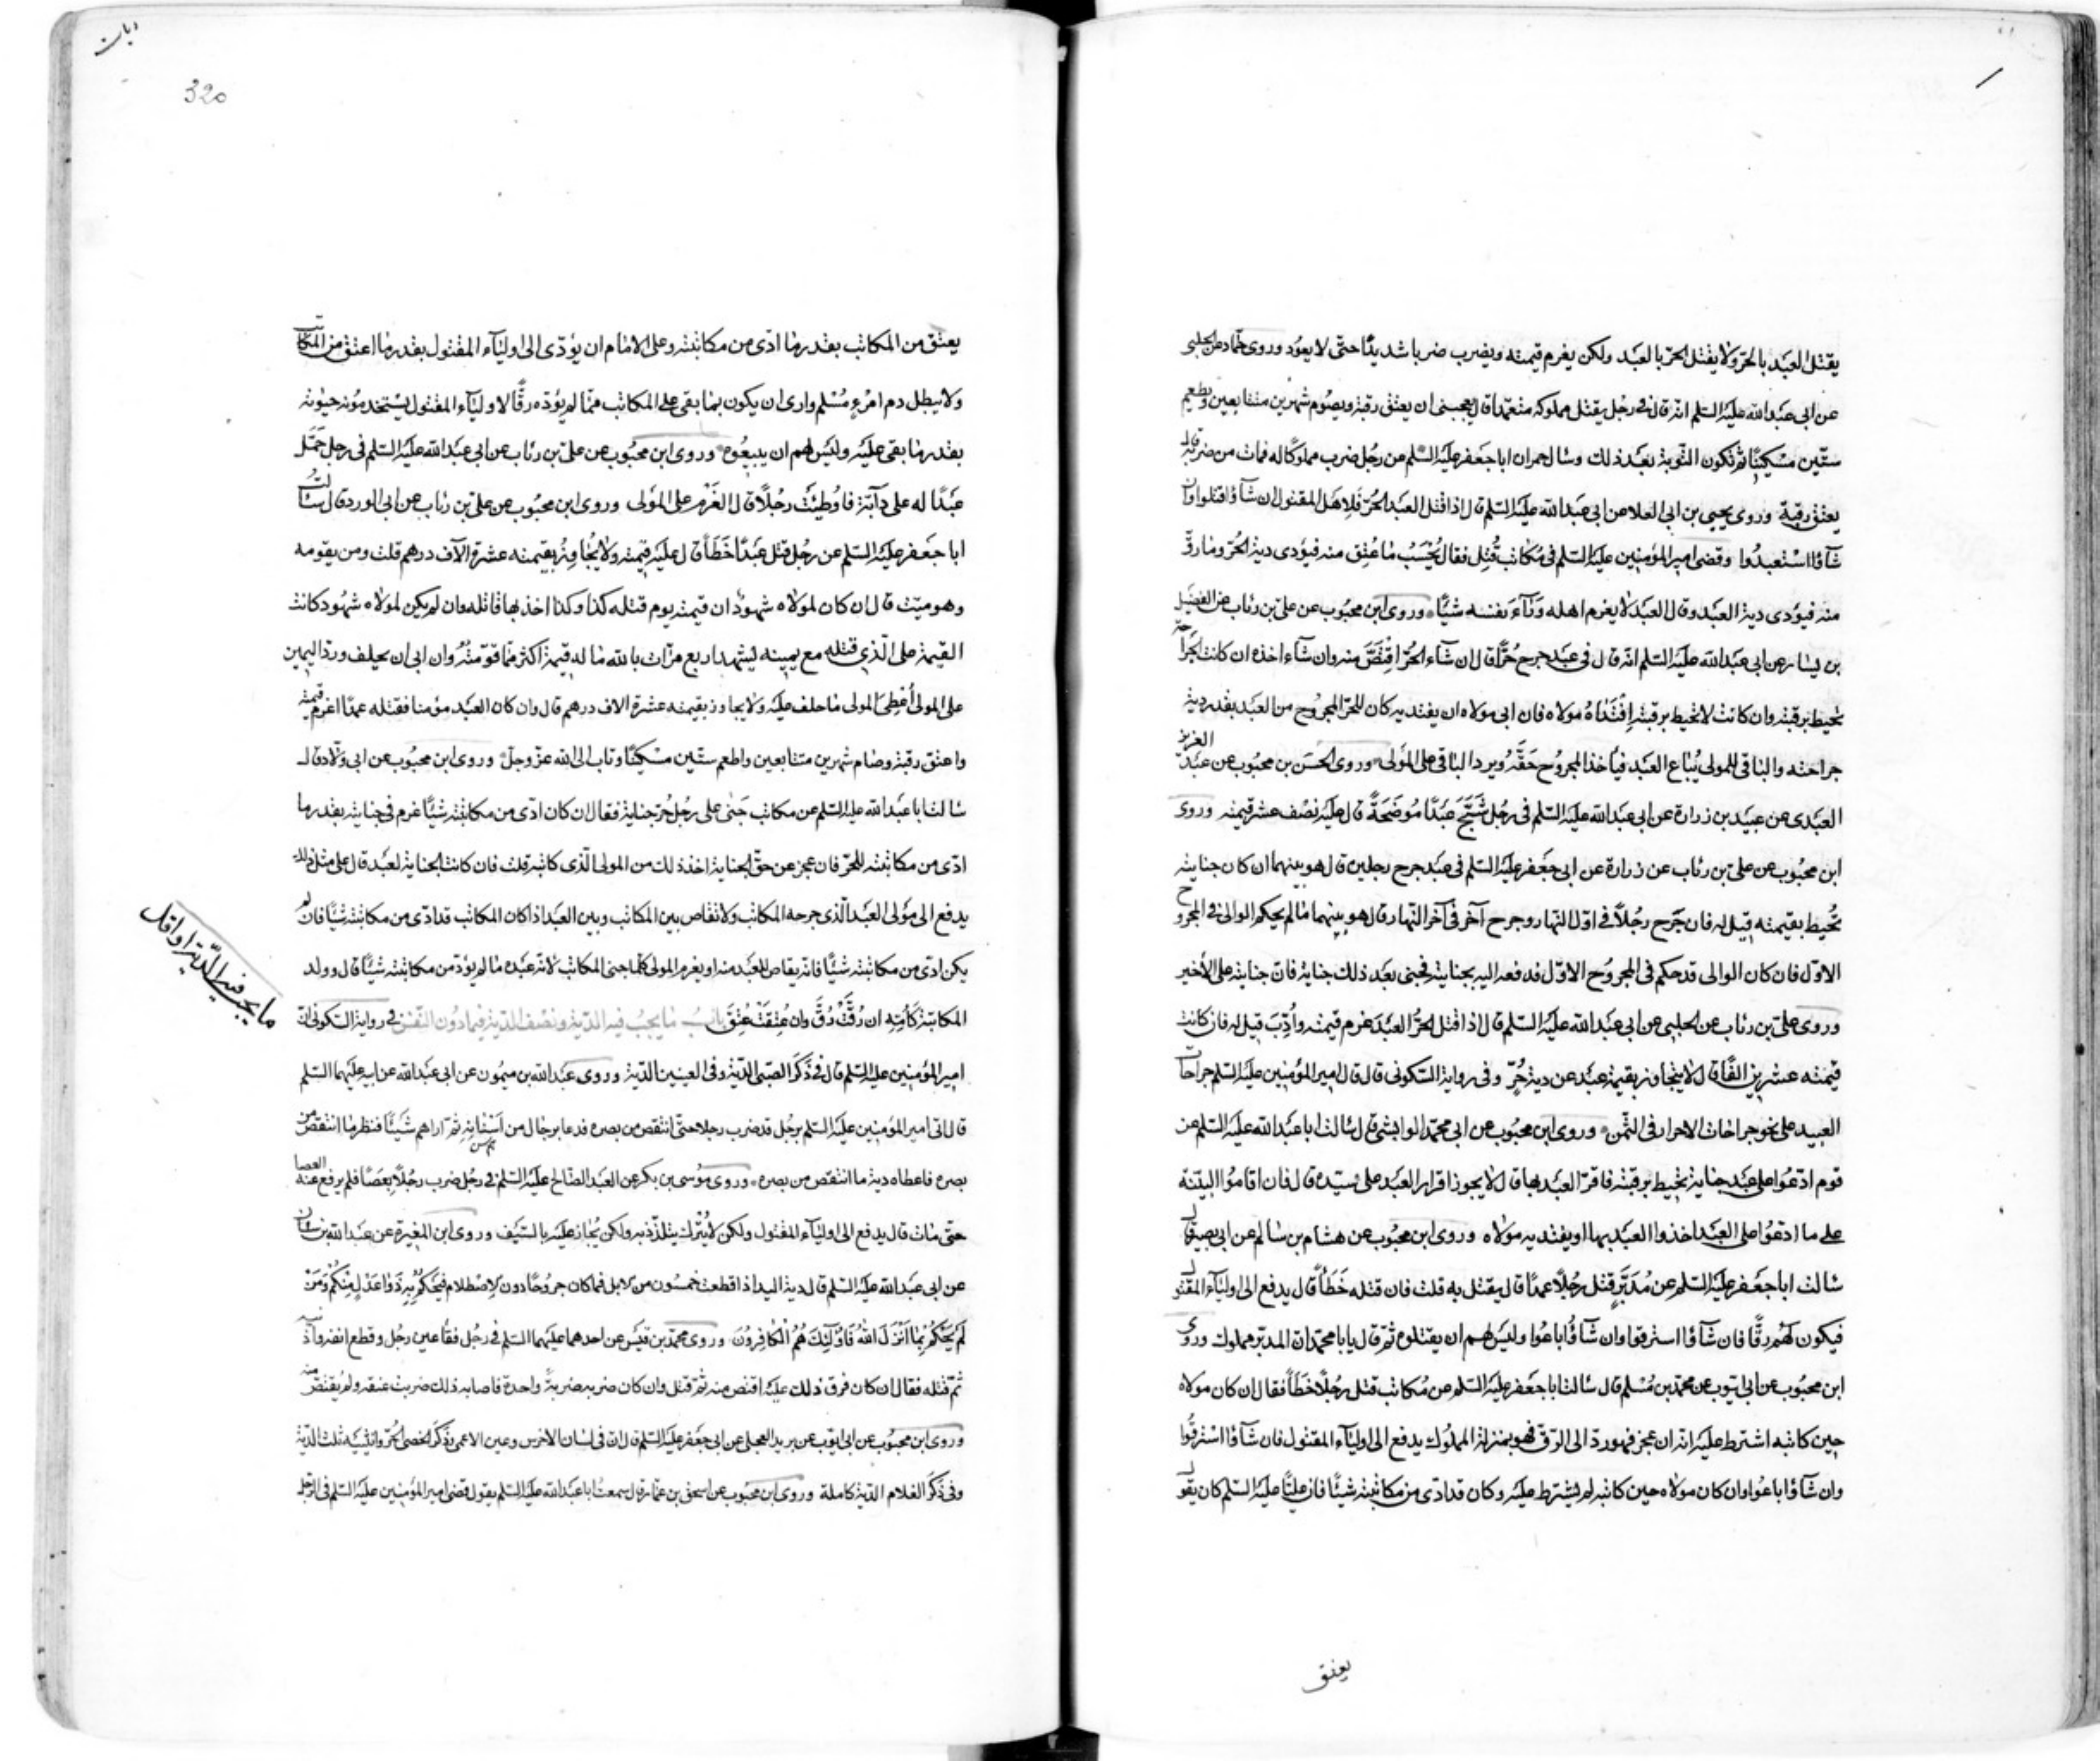 يقتل العبد بالحرّ ولا يقتل الحرّ بالعبد ولكن يغرم قيمته ويضرب ضربا شديدًا حتّى لا يعود وروى حمّاد عن الحلبي
عن ابى عبد الله عليه السّلم انّه قال فى رجل يقتل مملوكه متعمّدا قال يعجبنى ان يعتق رقبة ويصوم شهرين متتابعين ويطعم
ستّين مسكينًا ثم تكون التّوبة بعد ذلك وسال حمران ابا جعفر عليه السّلم عن رجل ضرب مملوكًا له فمات من ضربه قال
يعتق رقبة وروى يحيى بن ابى العلا عن ابى عبد الله عليه السّلم قال اذا قتل العبد الحرّ فلاهل المقتول ان شآؤا قتلوا وان
شآؤا استعبدوا وقضى امير المؤمنين عليه السّلم فى مكاتب قُتِل فقال يُحْسَبُ ما عُتِق منه فيؤدى دية الحرّ وما رقّ
منه فيؤدى دية العبد وقال العبد لا يغرم اهله وَرَآءَ نفسه شيئًا وروى ابن محبوب عن على بن رئاب عن الفضيل
بن يسار عن ابى عبد الله عليه السّلم انّه قال فى عبد جرح حُرًّا قال ان شاء الحرّ اقتصّ منه وان شاء اخذه ان كانت الجراحة
تحيط برقبته وان كانت لا تحيط برقبته اِفْتَدَاهُ مولاه فان ابى مولاه ان يفتديه كان للحرّ المجروح من العبد بقدر دية
جراحته والباقى للمولى يُباع العبد فيأخذ المجروح حَقَّهُ ويردّ الباقى على المولى وروى الحسن بن محبوب عن عبد العزيز
العبدى عن عبيد بن زرارة عن ابى عبد الله عليه السّلم فى رجل شَجَّ عَبدًا مُوضحَةً قال عليه نصف عشر قيمته وروى
ابن محبوب عن على بن رئاب عن زرارة عن ابى جعفر عليه السّلم فى عبد جرح رجلين قال هو بينهما ان كان جنايته
تُحيط بقيمته قيل له فان جَرَح رجُلاً فى اوّل النّهار وجرح آخر فى آخر النّهار قال هو بينهما ما لم يحكم الوالى فى المجروح
الاوّل فان كان الوالى قد حكم فى المجروح الاوّل فدفعه اليه بجنايته فجنى بعد ذلك جناية فان جنايته على الأخير
وروى على بن رئاب عن الحلبى عن ابى عبد الله عليه السّلم قال اذا قتل الحُرُّ العبدَ غرم قيمته واُدِّبَ قيل له فان كانت
قيمته عشرين الفًا قال لا يتجاوز بقيمة عبد عن دية حُرٍّ وفى رواية السّكونى قال قال امير المؤمنين عليه السّلم جراحات
العبيد على نحو جراحات الاحرار فى الثّمن وروى ابن محبوب عن ابى محمّد الوابشى قال سالت ابا عبد الله عليه السّلم عن
قوم ادّعوا على عبد جناية تحيط برقبته فاقرّ العبد بها قال لا يجوز اقرار العبد على سيّده قال فان اقاموا البيّنة
على ما ادّعوا على العبد اخذوا العبد بها او يفتديه مولاه وروى ابن محبوب عن هشام بن سالم عن ابى بصير قال
سالت ابا جعفر عليه السّلم عن مُدَبَّرٍ قتل رجُلاً عمدًا قال يقتل به قلت فان قتله خَطَأً قال يدفع الى اوليآء المقتول
فيكون لهُم رِقًّا فان شآؤا استرقوا وان شآؤا باعوا وليس لهم ان يقتلوه ثمّ قال يابا محمّد انّ المدبّر مملوك وروى
ابن محبوب عن ابى ايّوب عن محمّد بن مُسْلم قال سالت ابا جعفر عليه السّلم عن مُكاتب قتل رجُلاً خَطَأً فقال ان كان مولاه
حين كاتبه اشترط عليه انّه ان عجز فهو ردّ الى الرّق فهو بمنزلة المملوك يدفع الى اوليآء المقتول فان شآؤا استرقّوا
وان شآؤا باعُوا وان كان مولاه حين كاتبه لم يشترط عليه وكان قد ادّى من مكاتبته شيئًا فان عليًّا عليه السّلم كان يقول
يعتق
320
يعتق من المكاتب بقدر ما ادّى من مكاتبته وعلى الامام ان يؤدّى الى اوليآء المقتول بقدر ما اعتق من المكاتب
ولا يبطل دم امرءٍ مُسْلم وارى ان يكون بما بقى على المكاتب ممّا لم يؤدّه رقًّا لاوليآء المقتول يستخدمونه حيوته
بقدر ما بقى عليه وليس لهم ان يبيعُوه وروى ابن محبُوب عن على بن رئاب عن ابى عبد الله عليه السّلم فى رجل حَمَلَ
عبدًا له على دآبّة فاوطئت رجُلاً قال الغُرم على المولى وروى ابن محبوب عن على بن رئاب عن ابى الورد قال سالت
ابا جعفر عليه السّلم عن رجُل قتل عبدًا خَطَأً قال عليه قيمته ولا يُجاوز بقيمته عشرة الآف درهم قلت ومن يقومه
وهو ميّت قال ان كان لمولاه شهودٌ ان قيمته يوم قتله كذا وكذا اخذ بها قاتله وان لم يكن لمولاه شهُود كانت
القيمة على الّذى قتله مع يمينه يشهد اربع مرّات بالله ما له قيمة اكثر ممّا قوّمتُهُ وان ابى ان يحلف وردّ اليمين
على المولى اُعطِىَ المولى ما حلف عليه ولا يجاوز بقيمته عشرة الاف درهم قال وان كان العبد مؤمنا فقتله عمدًا اغرم قيمته
واعتق رقبة وصام شهرين متتابعين واطعم ستّين مسكينًا وتاب الى الله عزّ وجلّ وروى ابن محبُوب عن ابى ولاّد قال
سالت ابا عبد الله عليه السّلم عن مكاتب جَنٰى على رجُل حُرّ جناية فقال ان كان ادّى من مكاتبته شيئًا غرم فى جنايته بقدر ما
ادّى من مكاتبته للحرّ فان عجز عن حقّ الجناية اخذ ذلك من المولى الّذى كاتبه قلت فان كانت الجناية لعبد قال على مثل ذلك
يدفع الى مولى العبد الّذى جرحه المكاتب ولا تقاصّ بين المكاتب وبين العبد اذا كان المكاتب قد ادّى من مكاتبته شيئًا فان لم
يكن ادّى من مكاتبته شيئًا فانّه يقاصّ للعبد منه او يغرم المولى كلّما جنى المكاتب لانّه عبده ما لم يؤدّ من مكاتبته شيئًا قال وولد
المكاتبة كَاُمّهِ ان رُقَّتْ رُقَّ وان عُتِقَتْ عُتِقَ بابُ ما يجبُ فيه الدّية ونصف الدّية فيما دُون النّفس فى رواية السّكونى انّ
ما يجب فيه الدّية او اقل
امير المؤمنين عليه السّلم قال فى ذَكَر الصّبى الدّية وفى العينين الدّية وروى عبد الله بن ميمُون عن ابى عبد الله عن ابيه عليهما السّلم
قال اتى امير المؤمنين عليه السّلم برجُل قد ضرب رجلا حتّى انتقص من بصره فدعا برجال من اَسْنَانِهِ ثمّ اراهم شيئًا فنظر ما انتقص من
بصره فاعطاه دية ما انتقص من بصره وروى مُوسى بن بكر عن العبد الصّالح عليه السّلم فى رجُل ضرب رجُلاً بِعَصًا فلم يرفع عنه العصا
حتّى مات قال يدفع الى اوليآء المقتول ولكن لا يُتْرك يتلذّذ به ولكن يُجاز عليه بالسّيف وروى ابن المغيرة عن عبد الله بن سنان
عن ابى عبد الله عليه السّلم قال دية اليد اذا قطعت خمسُون من الابل فما كان جروحًا دون الاصْطلام فيَحْكُمُ بِهِ ذَوٰا عَدْلٍ مِنْكُمْ وَمَنْ
لَمْ يَحْكُمْ بِمٰا اَنْزَلَ اللهُ فَاُولٰئِكَ هُمُ الْكَافِرُونَ وروى محمّد بن قيس عن احدهما عليهما السّلم فى رجُل فقأ عين رجُل وقطع انفه واذنيه
ثمّ قتله فقال ان كان فرق ذلك عليه اقتص منه ثمّ قتل وان كان ضربه ضربةً واحدة فاصابه ذلك ضربت عنقه ولم يقتصّ منه
وروى ابن محبُوب عن ابى ايّوب عن بريد العجلى عن ابى جعفر عليه السّلم قال انّ فى لسان الاخرس وعين الاعمى وذَكَر الخصى الحُرّ وانثييه ثلث الدّية
وفى ذَكَر الغلام الدّية كاملة وروى ابن محبوب عن اسحق بن عمّار قال سمعت ابا عبد الله عليه السّلم يقول قضى امير المؤمنين عليه السّلم فى الرّجل